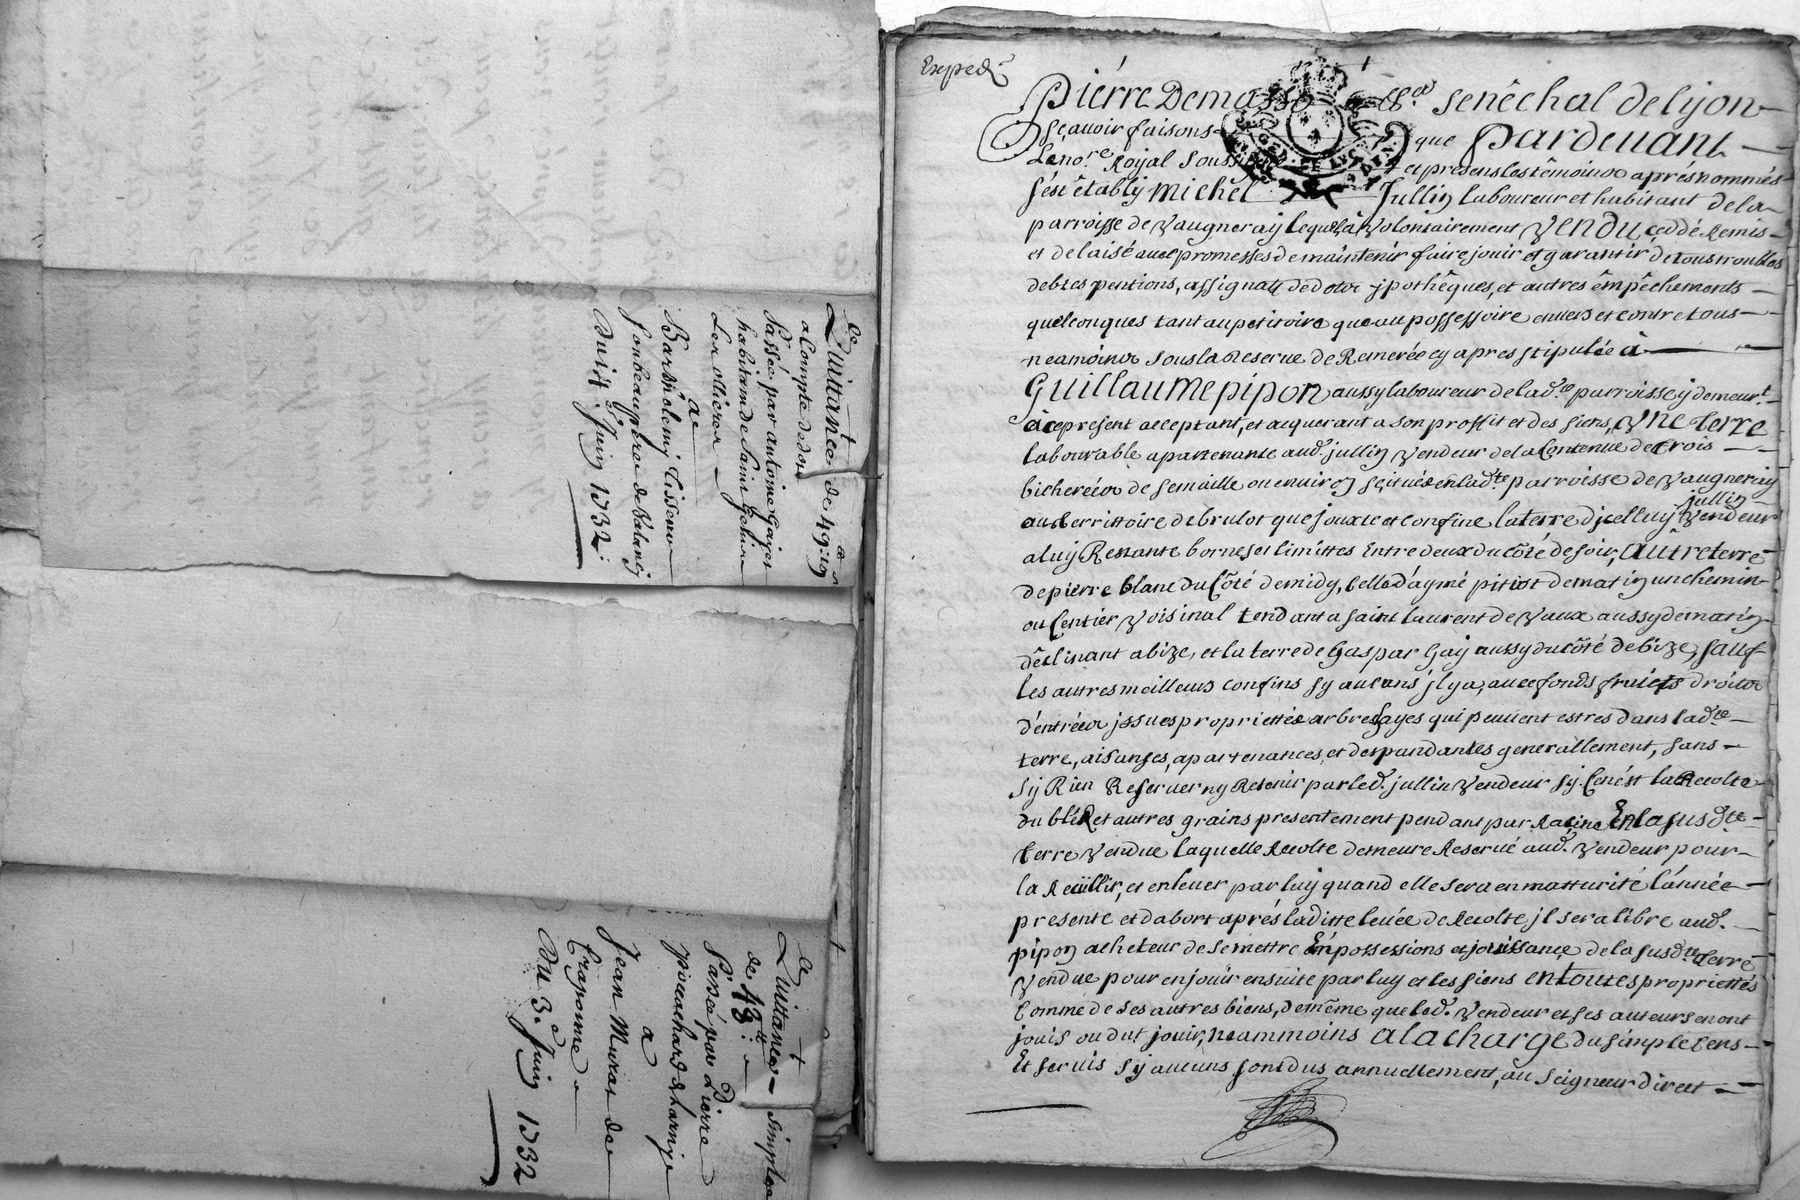 Ce
Quittance de 49:10
a Compte de dot
Passée par antoine Gayet
habitant de Saint Genis
Les ollieres
a
Barthelemy Tisseur
son beaupere de
Du 14. Juin 1732:
Ce
Quittance simple
de 48
Passé par Pierre
piocuchard de Larnye
a
Jean Murat de
Craponne
Du 3.e Juin 1732
Exped
Pierre Demasso senêchal de lyon
sçavoir faisons que pardevant
Le no.re Royal soussigné et presens les têmoins aprés nommés
s'est êtably michel Jullin Laboureur et habitant de la
parroisse de Vaugneray lequel a Volontairement Vendu, ceddé Remis
et delaisé avec promesses de maintenir faire jouir et garantir de tous troubles
debtes pentions, assignatt de dotz ypothêques, et autres êmpêchements
quelconques tant au petitoire que au possessoire envers et contre tous
neamoins sous la Reserve de Remerée cy apres stipulée à
Guillaume pipon aussy laboureur de lad.te parroisse y demeur.t
à ce present acceptant, et acquerant a son proffit et des siens, Vne terre
labourable apartenante aud. jullin Vendeur de la Contenue de trois
bicherées de semaille ou environ scituée en lad.te parroisse de Vaugneray
au territtoire de brulot que jouxte et confine la terre d'icelluy jullin Vendeur
a luy Restante bornes et limittes Entre deux du côté de soir, autre terre
de pierre blanc du Côté de midy, Celle d'aymé pitiot de matin un chemin
ou Sentier Voisinal tendant a saint laurent de Vaux aussy de matin
dêclinant a bize, et la terre de Gaspar Gay aussy du côté de bize, sauf
les autres meilleurs confins sy aucuns jl y a, avec fonds fruicts droits
d'entrées jssues proprietés arbres hayes qui peuvent estres dans lad.te
terre, aisanses, apartenances, et despandantes generallement, sans
sy Rien Reserver ny Retenir par led. jullin Vendeur sy Ce n'est la Recolte
du bléd et autres grains presentement pendant par Racine En la susd.te
terre Vendue laquelle Recolte demeure Reservé aud. Vendeur pour
la Reüllir, et enlever par luy quand elle sera en matturité l'année
presente et d'abort aprés laditte levée de Recolte jl sera libre aud.
pipon acheteur de se mettre En possessions et jouissance de la susd.te terre
Vendue pour en jouir ensuite par luy et les siens en toutes propriettés
Comme de ses autres biens, de même que led. Vendeur et ses auteurs en ont
jouis ou dut jouir, neammoins a la charge du simple Cens
Et servis sy aucuns sont dus annuellement, au seigneur direct